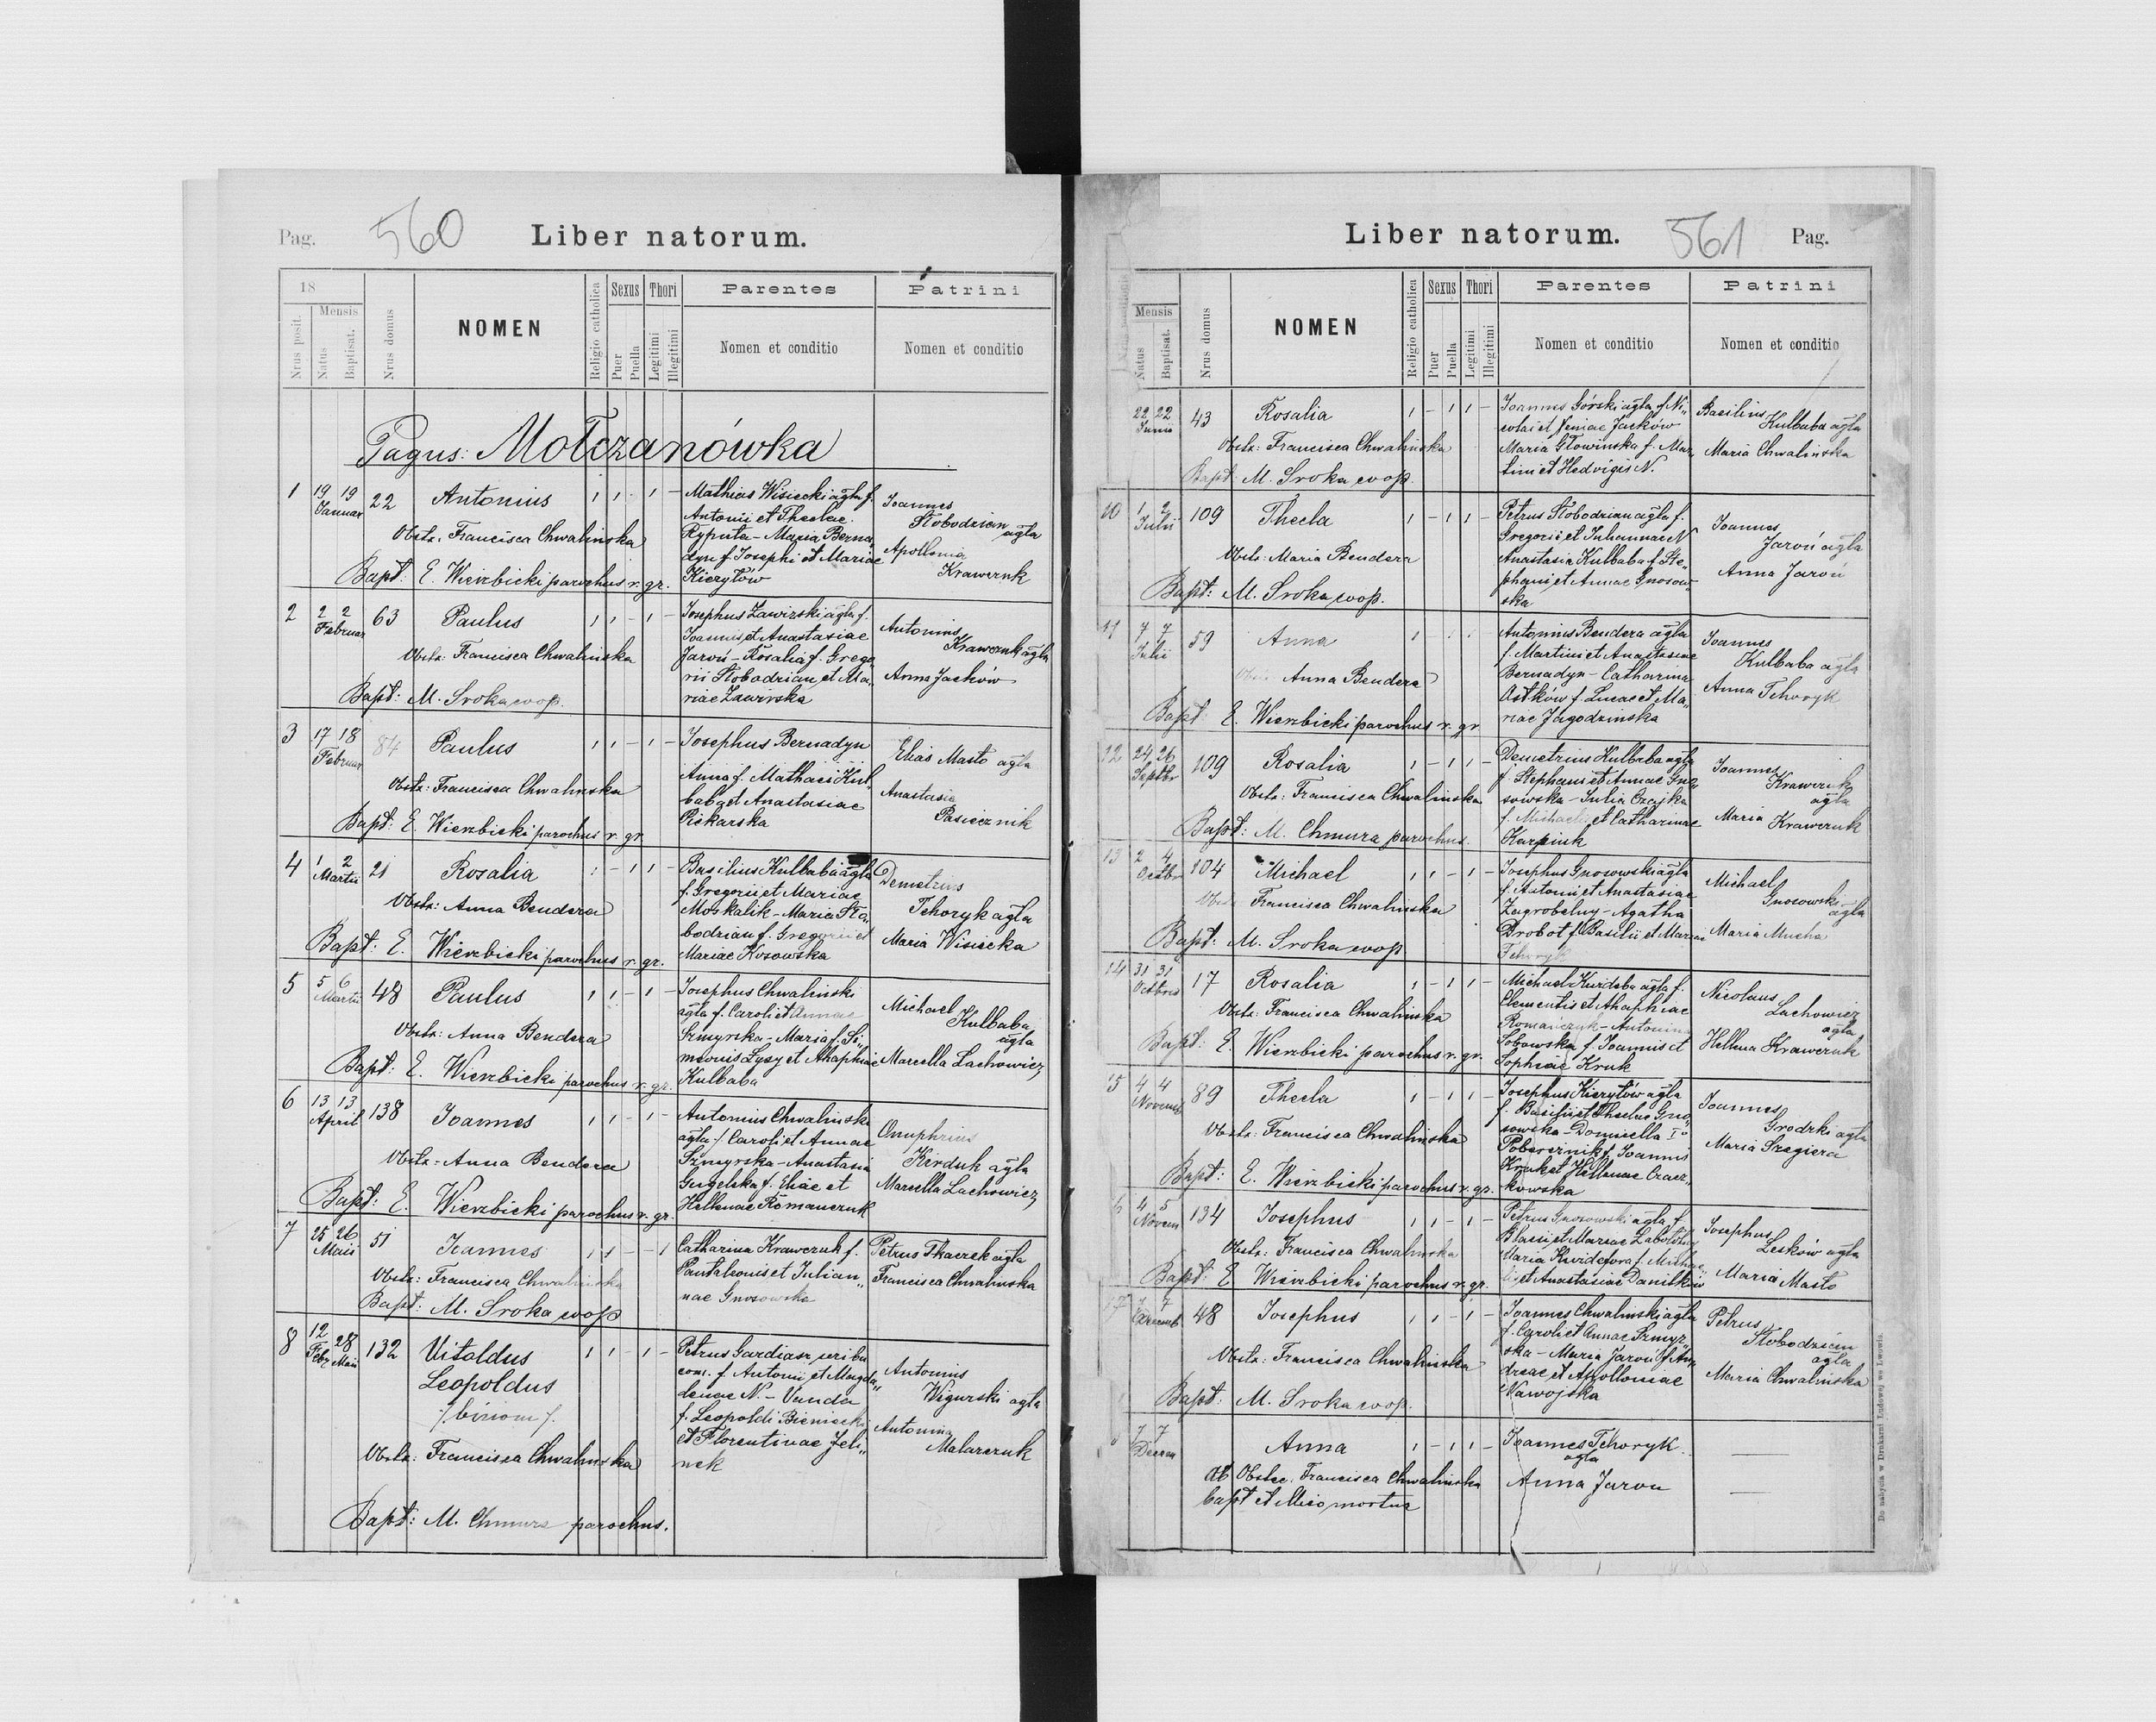 Pag.
560
Liber natorum.
18
Nrus posit.
Mensis
Natus
Baptisat.
Nrus domus
NOMEN
Religio catholica
Sexus
Puer
Puella
Thori
Legitimi
Illegitimi
Parentes
Nomen et conditio
Patrini
Nomen et conditio
Pagus: Mołczanówka
1 19 19 Januar 22 Antonius 1 1 - 1 -
Obstx. Francisca Chwalinska
Bapt: E. Wierzbicki parochus r. gr.
Mathias Wisiecki agla f.
Antonii et Theclae
Ryputa - Maria Berna„
dyn f. Josephi et Mariae
Kierytów
Joannes
Słobodzian agla
Apollonia
Krawczuk
2 2 2 Februar 63 Paulus 1 1 - 1 -
Obstx: Francisca Chwalinska
Bapt: M. Sroka coop.
Josephus Zawirski agla f.
Joannis et Anastasiae
Jaroń - Rosalia f. Grego
rii Słobodzian et Ma„
riae Zawirska
Antonius
Krawczuk agla
Anna Jacków
3 17 18 Februar 84 Paulus 1 1 - 1 -
Obstx: Francisca Chwalinska
Bapt: E. Wierzbicki parochus r. gr.
Josephus Bernadyn
Anna f. Mathaei Kul„
baba et Anastasiae
Pikarska
Elias Masto agla
Anastasia
Pasiecznik
4 1 2 Martii 21 Rosalia 1 - 1 1 -
Obstx: Anna Bendera
Bapt: E. Wierzbicki parochus r. gr.
Basilius Kulbaba agla
f. Gregorii et Mariae
Moskalik - Maria Sło„
bodzian f. Gregorii et
Mariae Kosowska
Demetrius
Tchoryk agla
Maria Wisiecka
5 5 6 Martii 48 Paulus 1 1 - 1 -
Obstx: Anna Bendera
Bapt: E. Wierzbicki parochus r. gr.
Josephus Chwalinski
agla f. Caroli et Annae
Szmyrska - Maria f. Si„
meonis Łysy et Ahaphiae
Kulbaba
Michael
Kulbaba
agla
Marcella Lachowicz
6 13 13 April 138 Joannes 1 1 - 1 -
Obstx: Anna Bendera
Bapt: E. Wierzbicki parochus r. gr.
Antonius Chwalinski
agla f. Caroli et Annae
Szmyrska - Anastasia
f. Eliae et
Hellenae Romanczuk
Onuphrius
Kirduk agla
Marcella Lachowicz
7 25 26 Maii 51 Joannes 1 1 - - 1
Obstx: Francisca Chwalinska
Bapt: M. Sroka coop
Catharina Krawczuk f.
Pantaleonis et Julian„
nae Gnosowska
Petrus Tkaczek agla
Francisca Chwalinska
8 12 Febr 28 Maii 132 Vitoldus 1 1 - 1 -
Leopoldus
/: binom :/
Obstx: Francisca Chwalinska
Bapt: M. Chmura parochus.
Petrus Gardiasz scriba
com. f. Antonii et Magda„
lenae N. - Vanda
f. Leopoldi Bieniecki
et Florentinae Jeli„
nek
Antonius
Wigurski agla
Antonina
Malarczuk
Liber natorum.
561
Pag.
Mensis
Natus
Baptisat.
Nrus domus
NOMEN
Religio catholica
Sexus
Puer
Puella
Thori
Legitimi
Illegitimi
Parentes
Nomen et conditio
Patrini
Nomen et conditio
22 22 Junii 43 Rosalia 1 - 1 1 -
Obstx: Francisca Chwalinska
Bapt: M. Sroka coop.
Joannes Górski agla f. Ni„
colai et Xeniae Jacków
Maria Głowinska f. Mar„
tini et Hedvigis N.
Basilius
Kulbaba agla
Maria Chwalinska
10 1 2 Julii 109 Thecla 1 - 1 1 -
Obstx: Maria Bendera
Bapt: M. Sroka coop.
Petrus Słobodzian agla f.
Gregorii et Juliannae N
Anastasia Kulbaba f. Ste„
phani et Annae Gnosow„
ska
Joannes
Jaroń agla
Anna Jaroń
11 7 7 Julii 59 Anna 1
Obstx Anna Bendera
Bapt: E. Wierzbicki parochus r. gr
Antonius Bendera agla
f. Martini et Anastasiae
Bernadyn - Catharina
Ostków f. Lucae et Ma„
riae Jagodzinska
Joannes
Kulbaba agla
Anna Tchoryk
12 24 26 Septbr 109 Rosalia 1 - 1 1 -
Obstx: Francisca Chwalinska
Bapt: M. Chmura parochus.
Demetrius Kulbaba agla
f. Stephani et Annae Gno„
sowska - Julia Czajka
f. Michaeli et Catharinae
Karpiuk
Joannes
Krawczuk
agla
Maria Krawczuk
13 2 4 Octbr 104 Michael 1 1 - 1 -
Obstx Francisca Chwalinska
Bapt: M. Sroka coop
Josephus Gnosowski agla
f. Antonii et Anastasiae
Zagrobelny - Agatha
Drobot f. Basilii et Mariae
Tchoryk
Michael
Gnosowski
agla
Maria Mucha
14 31 31 Octbris 17 Rosalia 1 - 1 1 -
Obstx: Francisca Chwalinska
Bapt: E. Wierzbicki parochus r. gr.
Michael Kurdeba agla f.
Clementis et Ahaphiae
Romańczyk - Antonina
Sobowska f. Joannis et
Sophiae Kruk
Nicolaus
Lachowicz
agla
Hellena Krawczuk
15 4 4 Novemb 89 Thecla 1 - 1 1 -
Obstx: Francisca Chwalinska
Bapt: E. Wierzbicki parochus r. gr.
Josephus Kierytów agla
f. Basilii et Theclae Gno„
sowska - Domicella
Pobereznik f. Joannis
Kruk et Hellenae Czacz„
kowska
Joannes
Grodzki agla
Maria Szegiera
6 4 5 Novem 134 Josephus 1 1 - 1 -
Obstx: Francisca Chwalinska
Bapt: E. Wierzbicki parochus r. gr.
Petrus Gnosowski agla f.
Blasii et Mariae
Maria f. Michae„
lis et Anastasiae Daniłków
Josephus
Lesków agla
Maria Masto
17 Decemb 48 Josephus 1 1 - 1 -
Obstx: Francisca Chwalinska
Bapt: M. Sroka coop.
Joannes Chwalinski agla
f. Caroli et Annae Szmyr„
ska - Maria Jaroń f. An„
dreae et Apolloniae
Nawojska
Petrus
Słobodzian
agla
Maria Chwalinska
7 7 Decem Anna 1 - 1 1 -
Ab Obstec. Francisca Chwalinska
bapt et mortua
Joannes Tchoryk
agla
Anna Jaron
Do nabycia w Drukarni Ludowej we Lwowie.